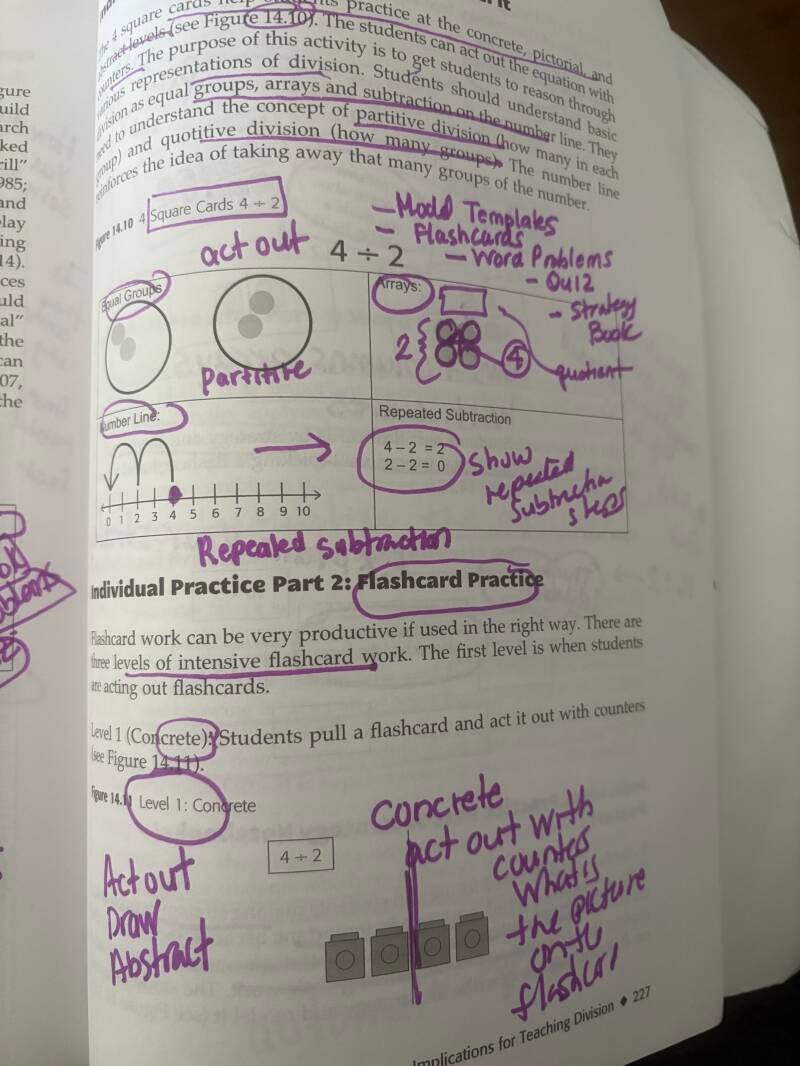 4 square cards help students practice at the concrete, pictorial, and
abstract levels (see Figure 14.10). The students can act out the equation with
counters. The purpose of this activity is to get students to reason through
various representations of division. Students should understand basic
division as equal groups, arrays and subtraction on the number line. They
need to understand the concept of partitive division (how many in each
group) and quotitive division (how many groups). The number line
reinforces the idea of taking away that many groups of the number.
Figure 14.10 4 Square Cards 4 ÷ 2
- Model Templates
- Flashcards
- Word Problems
- Quiz
- Strategy
Book
act out 4 ÷ 2
Equal Groups
Partitite
Arrays:
2
4
quotient
Number Line:
0 1 2 3 4 5 6 7 8 9 10
Repeated Subtraction
4 – 2 = 2
2 – 2 = 0
Show
repeated
Subtraction
steps
Repeated subtraction
Individual Practice Part 2: Flashcard Practice
Flashcard work can be very productive if used in the right way. There are
three levels of intensive flashcard work. The first level is when students
are acting out flashcards.
Level 1 (Concrete): Students pull a flashcard and act it out with counters
(see Figure 14.11).
Figure 14.11 Level 1: Concrete
Concrete
act out with
counters
What is
the picture
on
flashcard
4 ÷ 2
Act out
Draw
Abstract
Implications for Teaching Division ◆ 227
gure
uild
arch
ked
rill"
985;
and
play
ing
14).
ces
uld
al"
the
can
07,
the